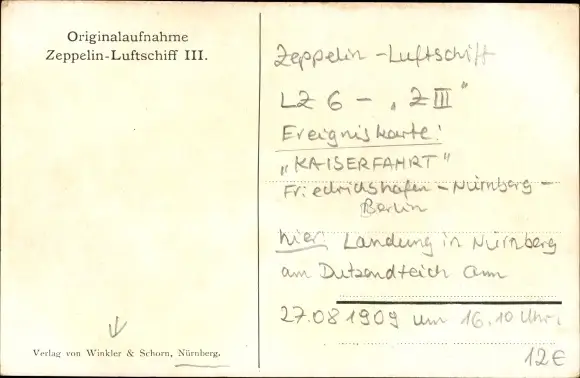 Originalaufnahme
Zeppelin-Luftschiff III.
Zeppelin-Luftschiff
LZ 6 - „Z III"
Ereigniskarte:
„KAISERFAHRT"
Friedrichshafen - Nürnberg -
Berlin
hier: Landung in Nürnberg
am Dutzendteich am
27.08 1909 um 16.10 Uhr.
Verlag von Winkler & Schorn, Nürnberg.
12€